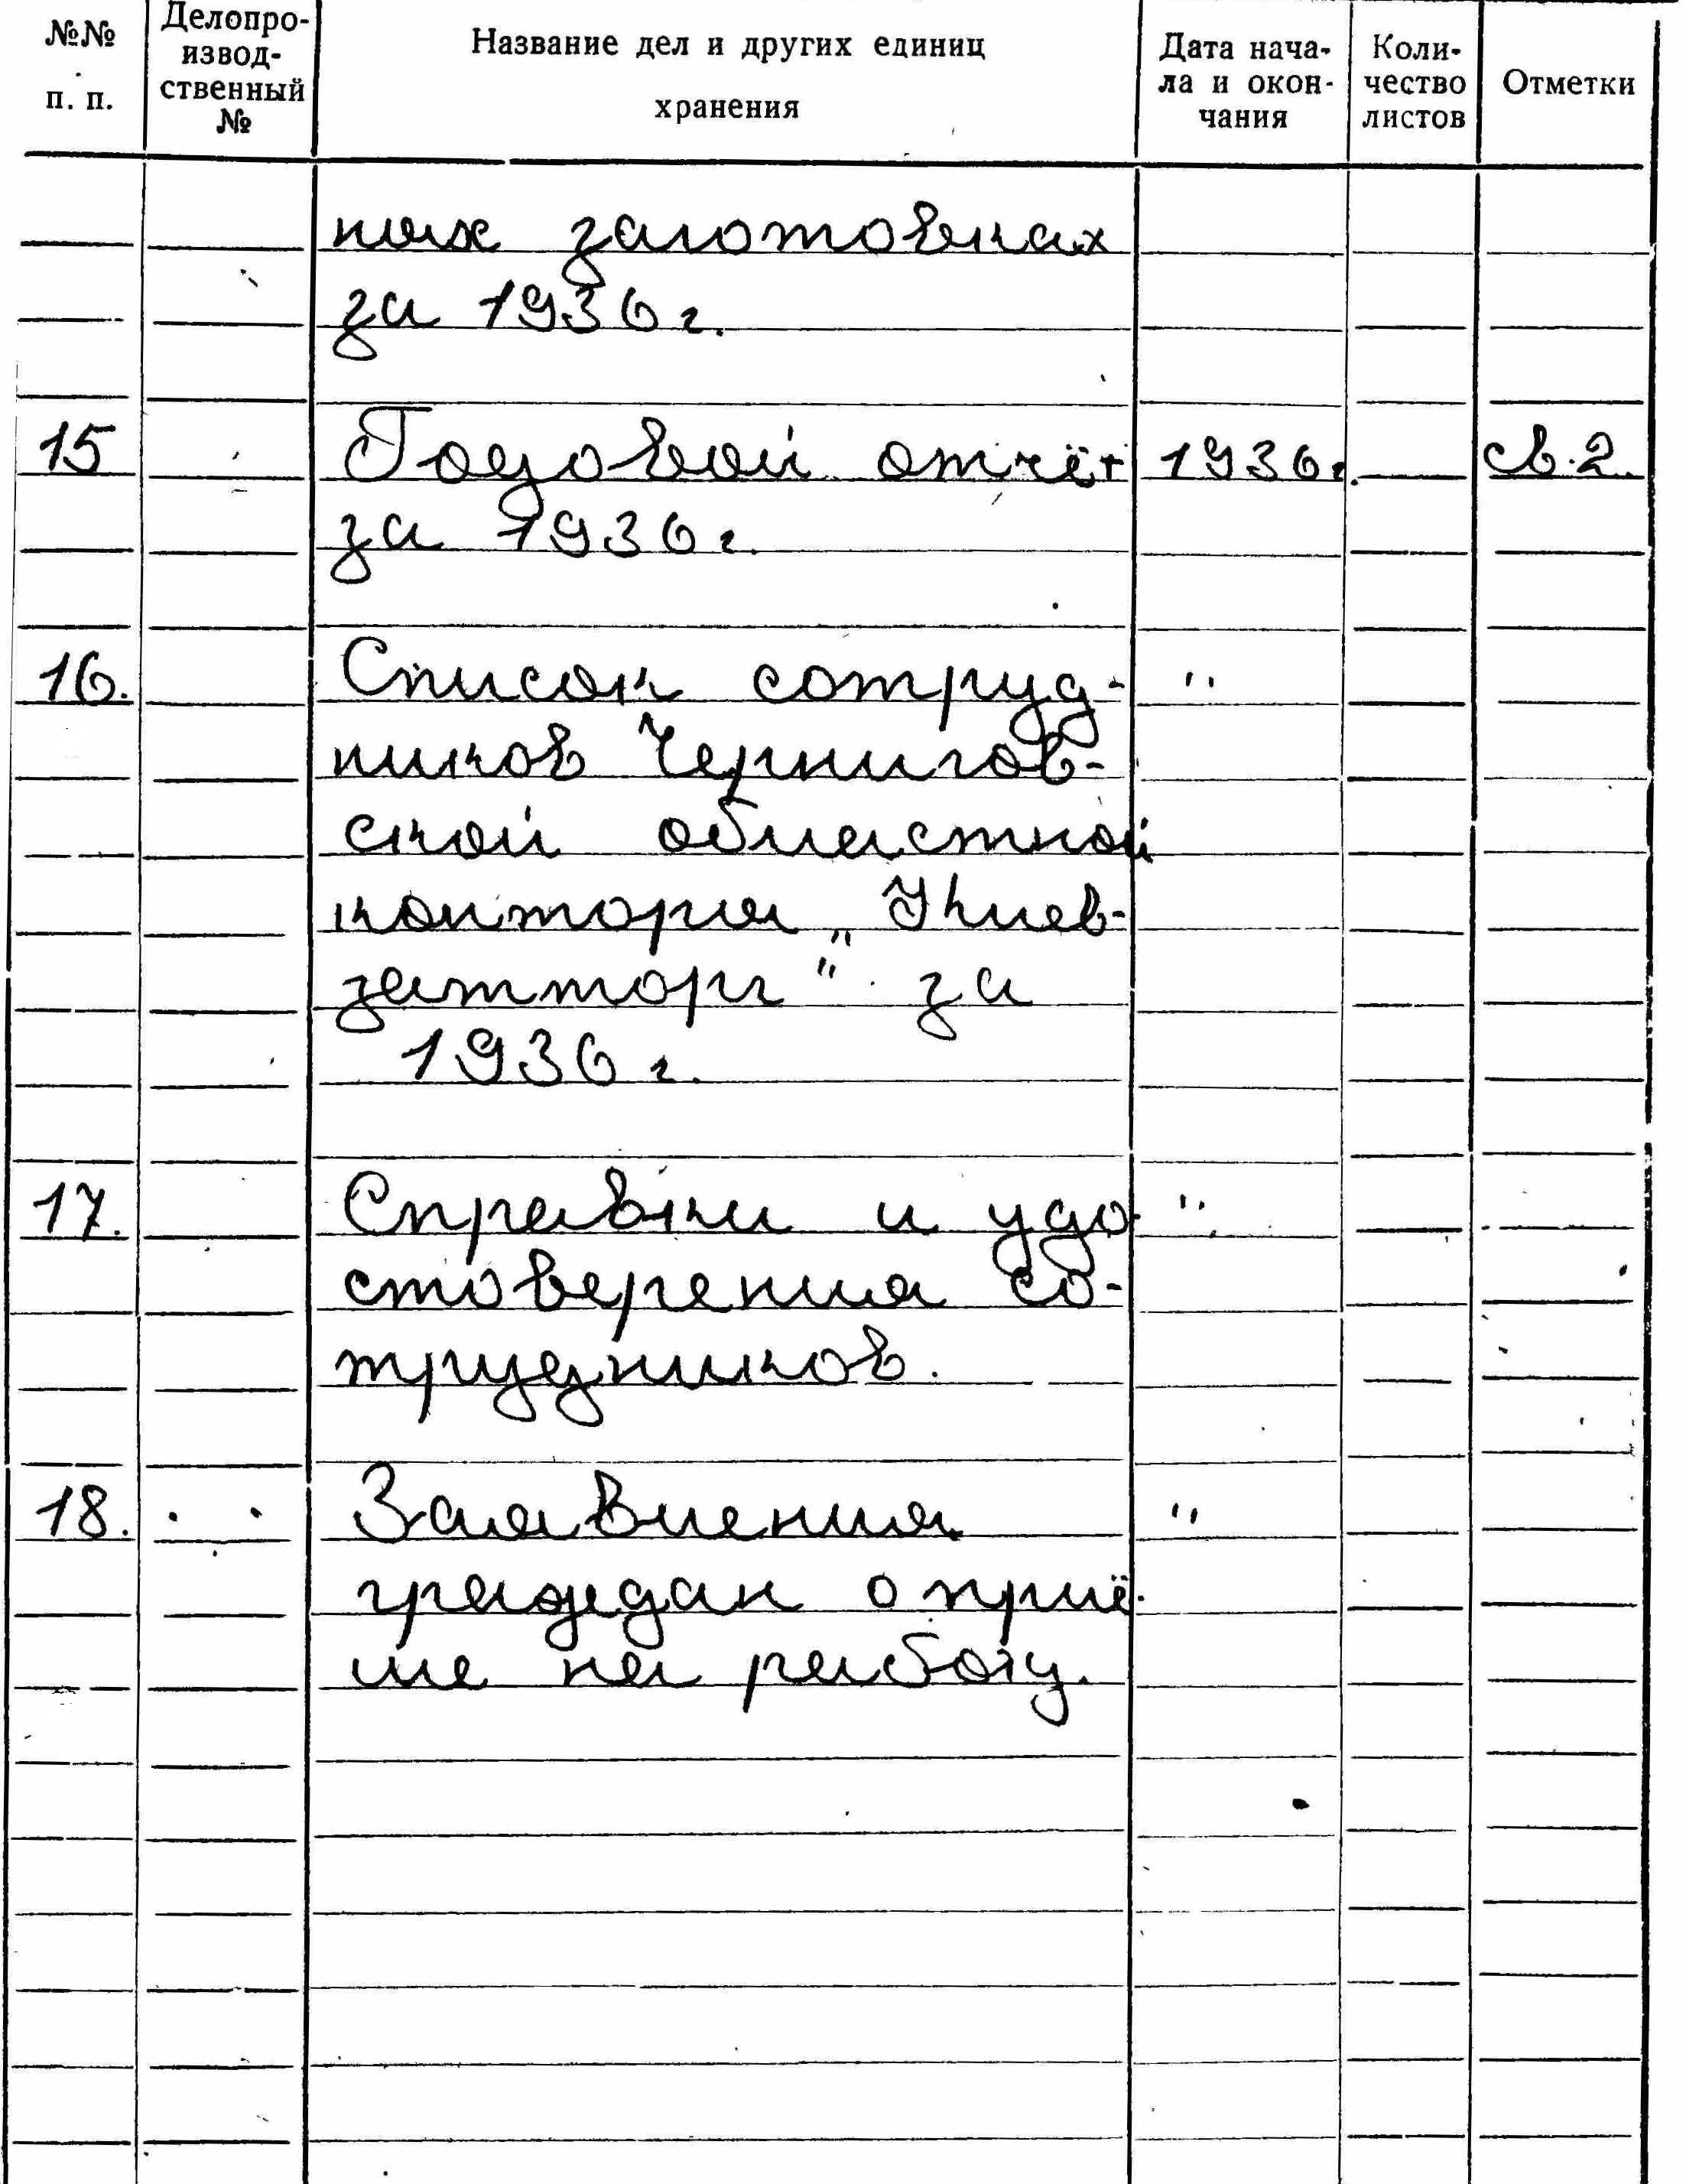 №№ п. п.
Делопро-
извод-
ственный
№
Название дел и других единиц
хранения
Дата нача-
ла и окон-
чания
Коли-
чество
листов
Отметки
ных заготовках
за 1936 г.
15 Годовой отчёт 1936 г. св. 2.
за 1936 г.
16. Список сотруд- "
ников Чернигов-
ской областной
конторы „
затторг" за
1936 г.
17. Справки и удо- "
стоверения со-
трудников.
18. Заявления "
граждан о приё-
ме на работу.